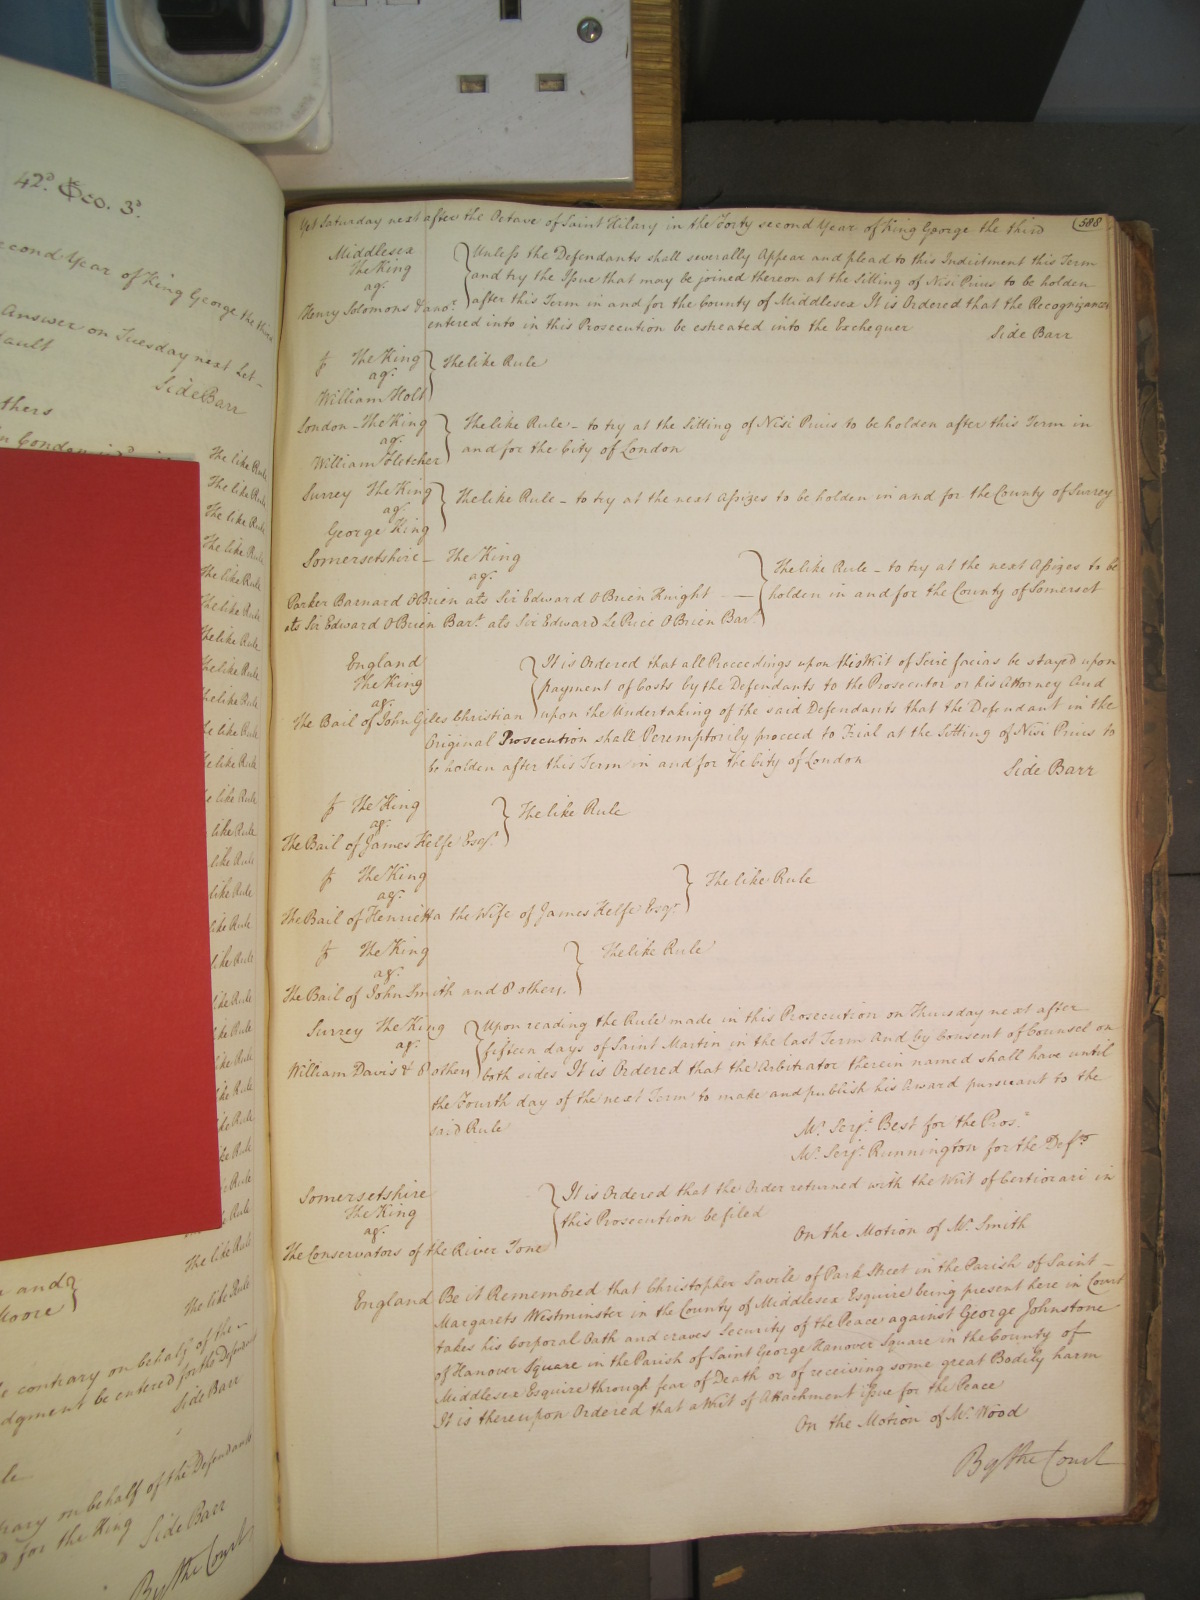 42d. Geo. 3d.
econd Year of King George the third
Answer on Tuesday next Let_
ault
Side Barr
thers
The like Rule
The like Rule
The like Rule
The like Rule
The like Rule
The like Rule
The like Rule
The like Rule
The like Rule
like Rule
like Rule
like Rule
like Rule
like Rule
like Rule
like Rule
like Rule
like Rule
like Rule
like Rule
like Rule
like Rule
like Rule
like Rule
Rule
The like Rule
and
The like Rule
Moore
contrary on behalf of the
dgment be entered for the Defendant
Side Barr
rary on behalf of the Defendants
for the King Side Barr
By the Court
Yet Saturday next after the Octave of Saint Hilary in the Forty second Year of King George the third
588
Middlesex
The King
agt.
Henry Solomons & anor.
Unless the Defendants shall severally Appear and plead to this Indictment this Term
and try the Issue that may be joined thereon at the Sitting of Nisi Prius to be holden
after this Term in and for the County of Middlesex It is Ordered that the Recognizance
entered into in this Prosecution be estreated into the Exchequer Side Barr
The King
agt.
William Holt
The like Rule
London _ The King
agt.
William Fletcher
The like Rule _ to try at the Sitting of Nisi Prius to be holden after this Term in
and for the City of London
Surrey The King
agt.
George King
The like Rule _ to try at the next Assizes to be holden in and for the County of Surrey
Somersetshire _ The King
agt.
Parker Barnard OBrien ats Sir Edward OBrien Knight
ats Sir Edward OBrien Bart. ats Sir Edward Le Price OBrien Bart.
The like Rule _ to try at the next Assizes to be
holden in and for the County of Somerset
England
The King
agt.
The Bail of John Giles Christian
It is Ordered that all Proceedings upon this Writ of Scire facias be stayed upon
payment of Costs by the Defendants to the Prosecutor or his Attorney And
upon the Undertaking of the said Defendants that the Defendant in the
Original Prosecution shall Peremptorily proceed to Trial at the Sitting of Nisi Prius to
be holden after this Term in and for the City of London Side Barr
The King
agt.
The Bail of James Kelfe Esqr.
The like Rule
The King
agt.
The Bail of Henrietta the Wife of James Kelfe Esqr.
The like Rule
The King
agt.
The Bail of John Smith and 8 others
The like Rule
Surrey The King
agt.
William Davis & 8 others
Upon reading the Rule made in this Prosecution on Thursday next after
fifteen days of Saint Martin in the last Term And by Consent of Counsel on
both sides It is Ordered that the Arbitrator therein named shall have until
the Fourth day of the next Term to make and publish his Award pursuant to the
said Rule
Mr. Serjt. Best for the Pros.
Mr. Serjt. Runnington for the Defts.
Somersetshire
The King
agt.
The Conservators of the River Tone
It is Ordered that the Order returned with the Writ of Certiorari in
this Prosecution be filed
On the Motion of Mr. Smith
England Be it Remembred that Christopher Savile of Park Street in the Parish of Saint _
Margarets Westminster in the County of Middlesex Esquire being present here in Court
takes his Corporal Oath and craves Security of the Peace against George Johnstone
of Hanover Square in the Parish of Saint George Hanover Square in the County of
Middlesex Esquire through fear of Death or of receiving some great Bodily harm
It is thereupon Ordered that a Writ of Attachment issue for the Peace
On the Motion of Mr. Wood
By the Court